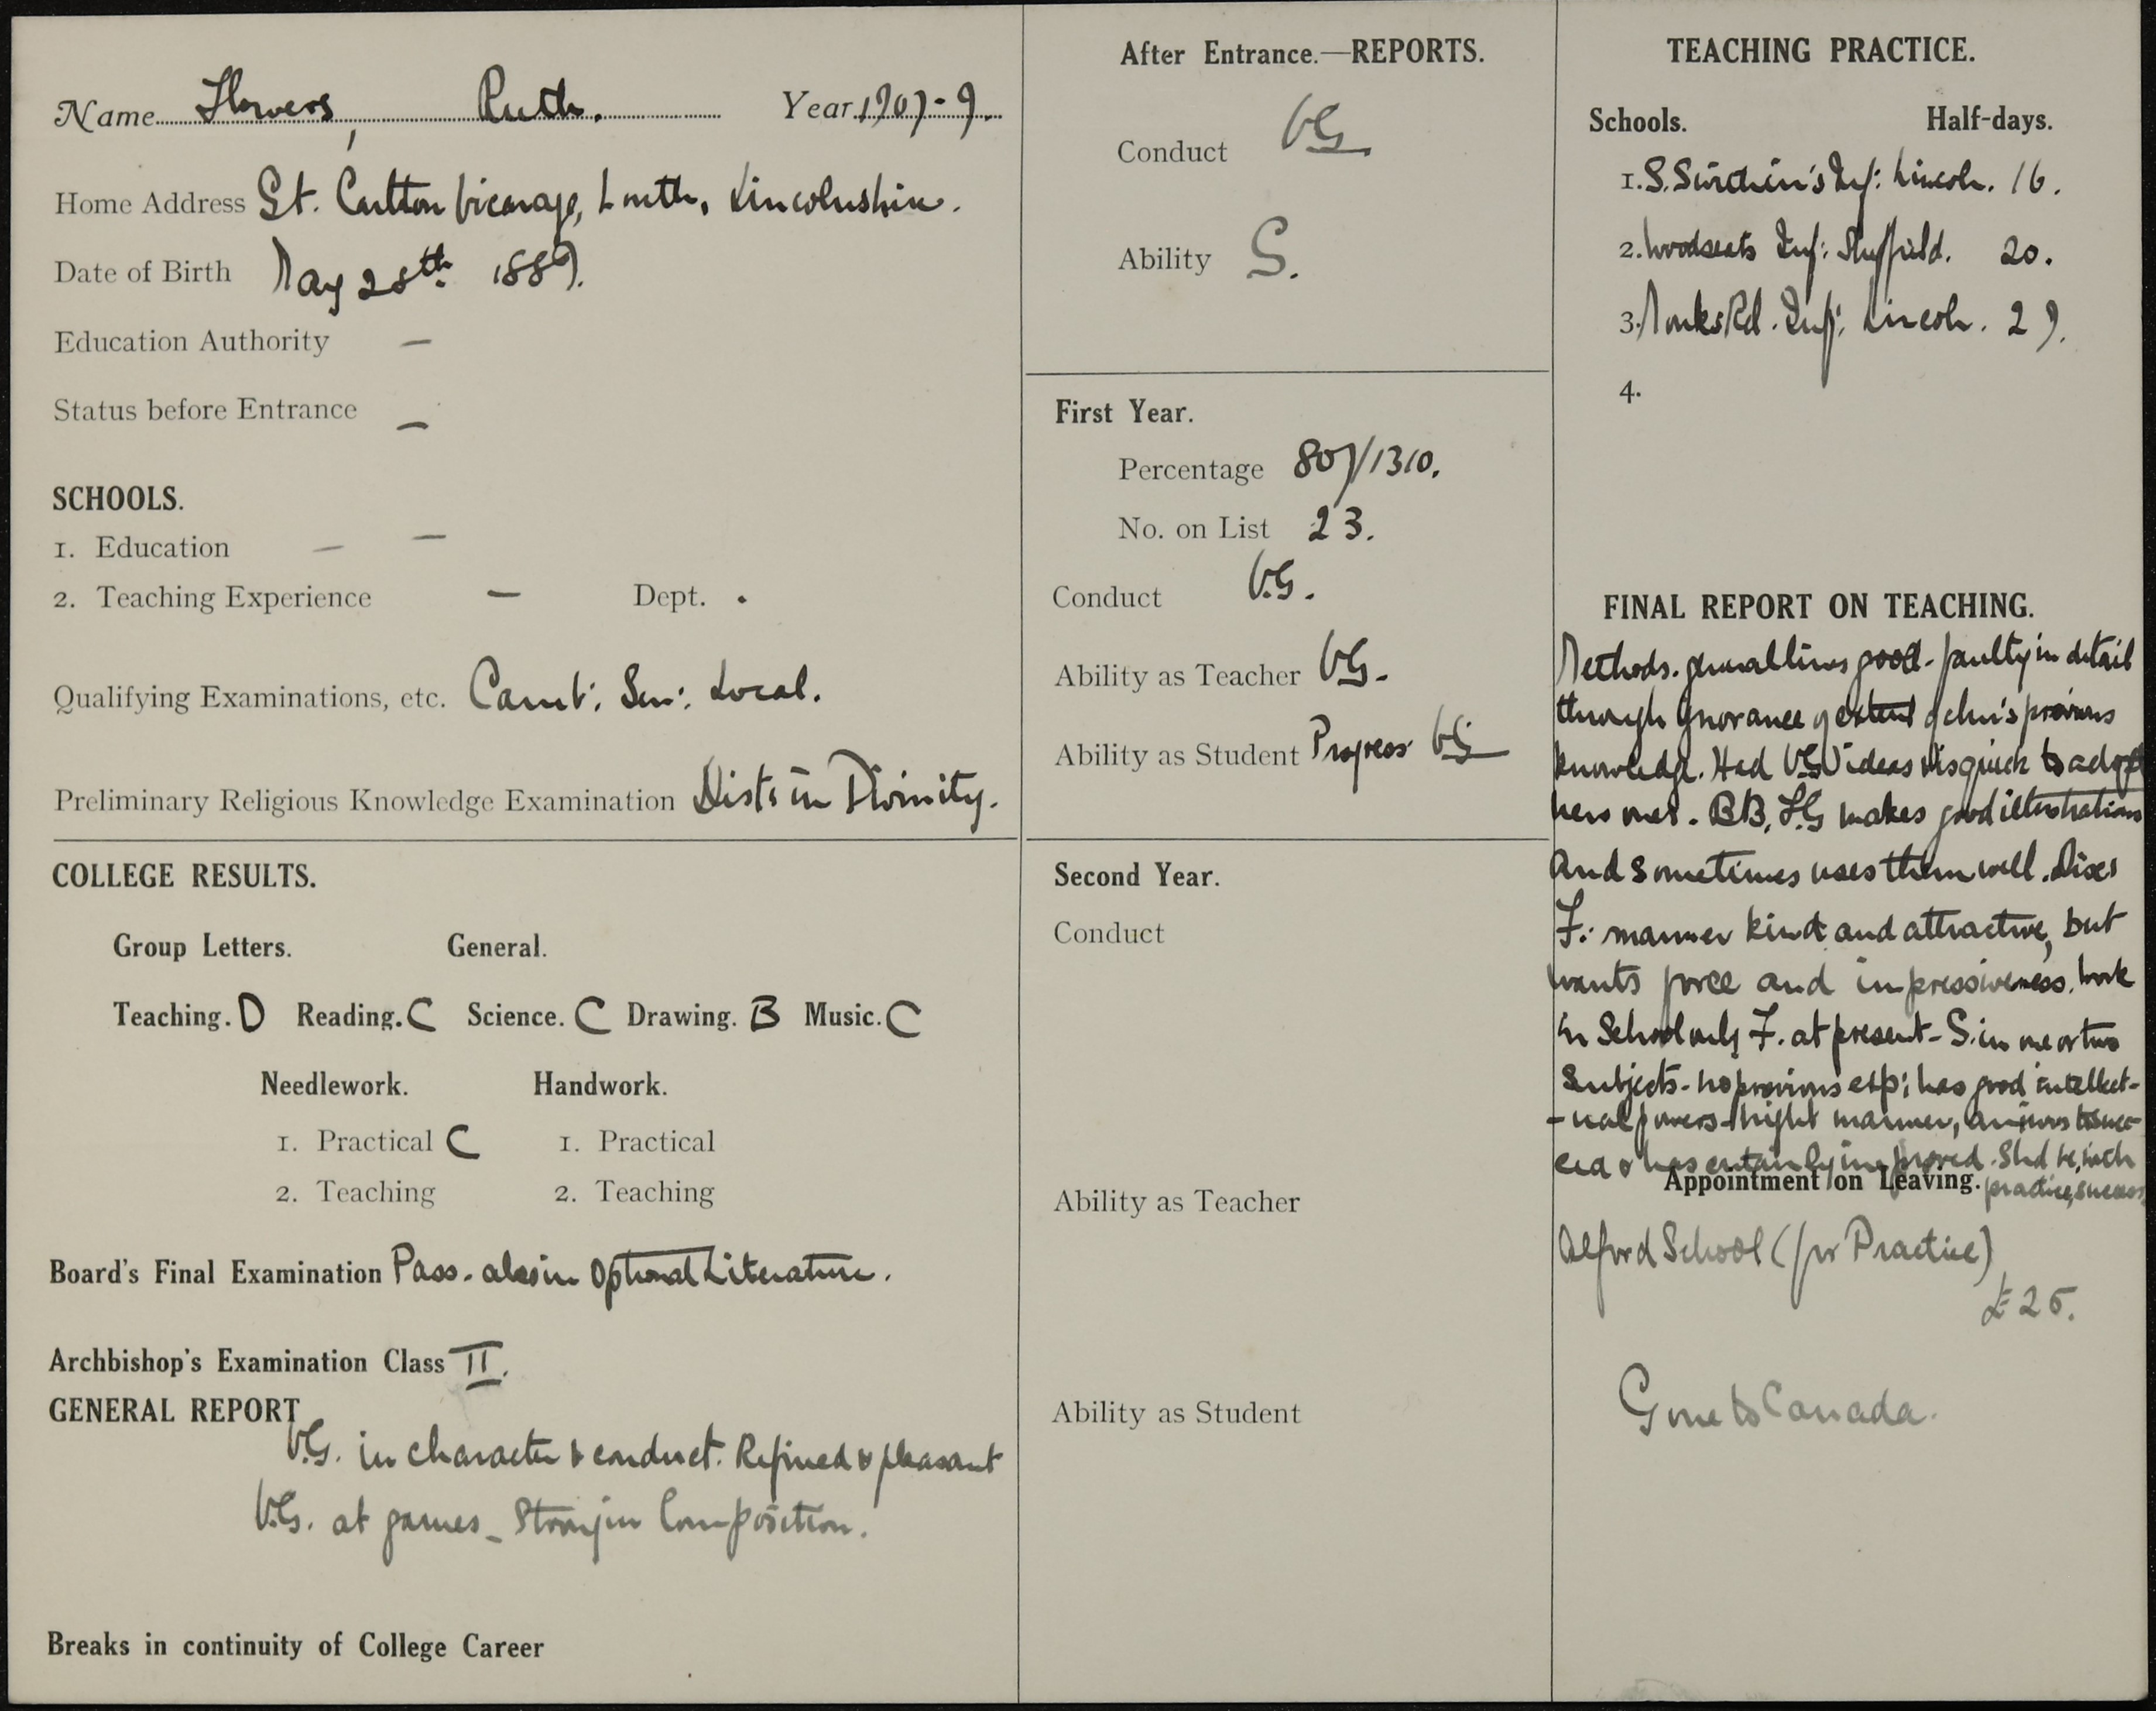 Name Flowers, Ruth. Year 1907-9.
Home Address Gt. Carlton Vicarage, Louth, Lincolnshire.
Date of Birth May 28th 1889.
Education Authority —
Status before Entrance —
SCHOOLS.
1. Education — —
2. Teaching Experience — Dept. .
Qualifying Examinations, etc. Camb: Sen: Local.
Preliminary Religious Knowledge Examination Dist: in Divinity.
COLLEGE RESULTS.
Group Letters. General.
Teaching. D Reading. C Science. C Drawing. B Music. C
Needlework. Handwork.
1. Practical C 1. Practical
2. Teaching 2. Teaching
Board's Final Examination Pass. also in Optional Literature.
Archbishop's Examination Class II.
GENERAL REPORT
V.G. in character & conduct. Refined & pleasant
V.G. at games - Strong in Composition.
Breaks in continuity of College Career
After Entrance.—REPORTS.
Conduct VG
Ability S.
First Year.
Percentage 807/1310.
No. on List 23.
Conduct V.G.
Ability as Teacher VG.
Ability as Student Progress VG
Second Year.
Conduct
Ability as Teacher
Ability as Student
TEACHING PRACTICE.
Schools. Half-days.
1. S. Swithin's Inf: Lincoln. 16.
2. Woodseats Inf: Sheffield. 20.
3. Monks Rd. Inf: Lincoln. 27.
4.
FINAL REPORT ON TEACHING.
Methods. general lines good - faulty in detail
through ignorance of extent of chn's previous
knowledge. Had VG ideas & is quick to adopt
new ones. BB. F.G makes good illustrations
and sometimes uses them well. Disc:
F: manner kind and attractive, but
wants force and impressiveness. Work
in School only F. at present - S. in one or two
Subjects - no previous exp: has good intellect-
-ual powers - bright manner, anxious to suc-
ceed & has certainly improved. Shd be, with
practice, success
Appointment on Leaving.
Alford School (for Practice)
£25.
Gone to Canada.